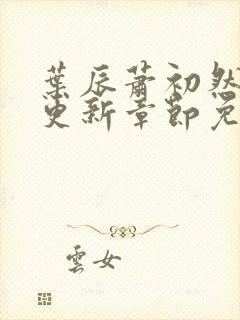 葉辰蕭初然
更新章節免
雲女